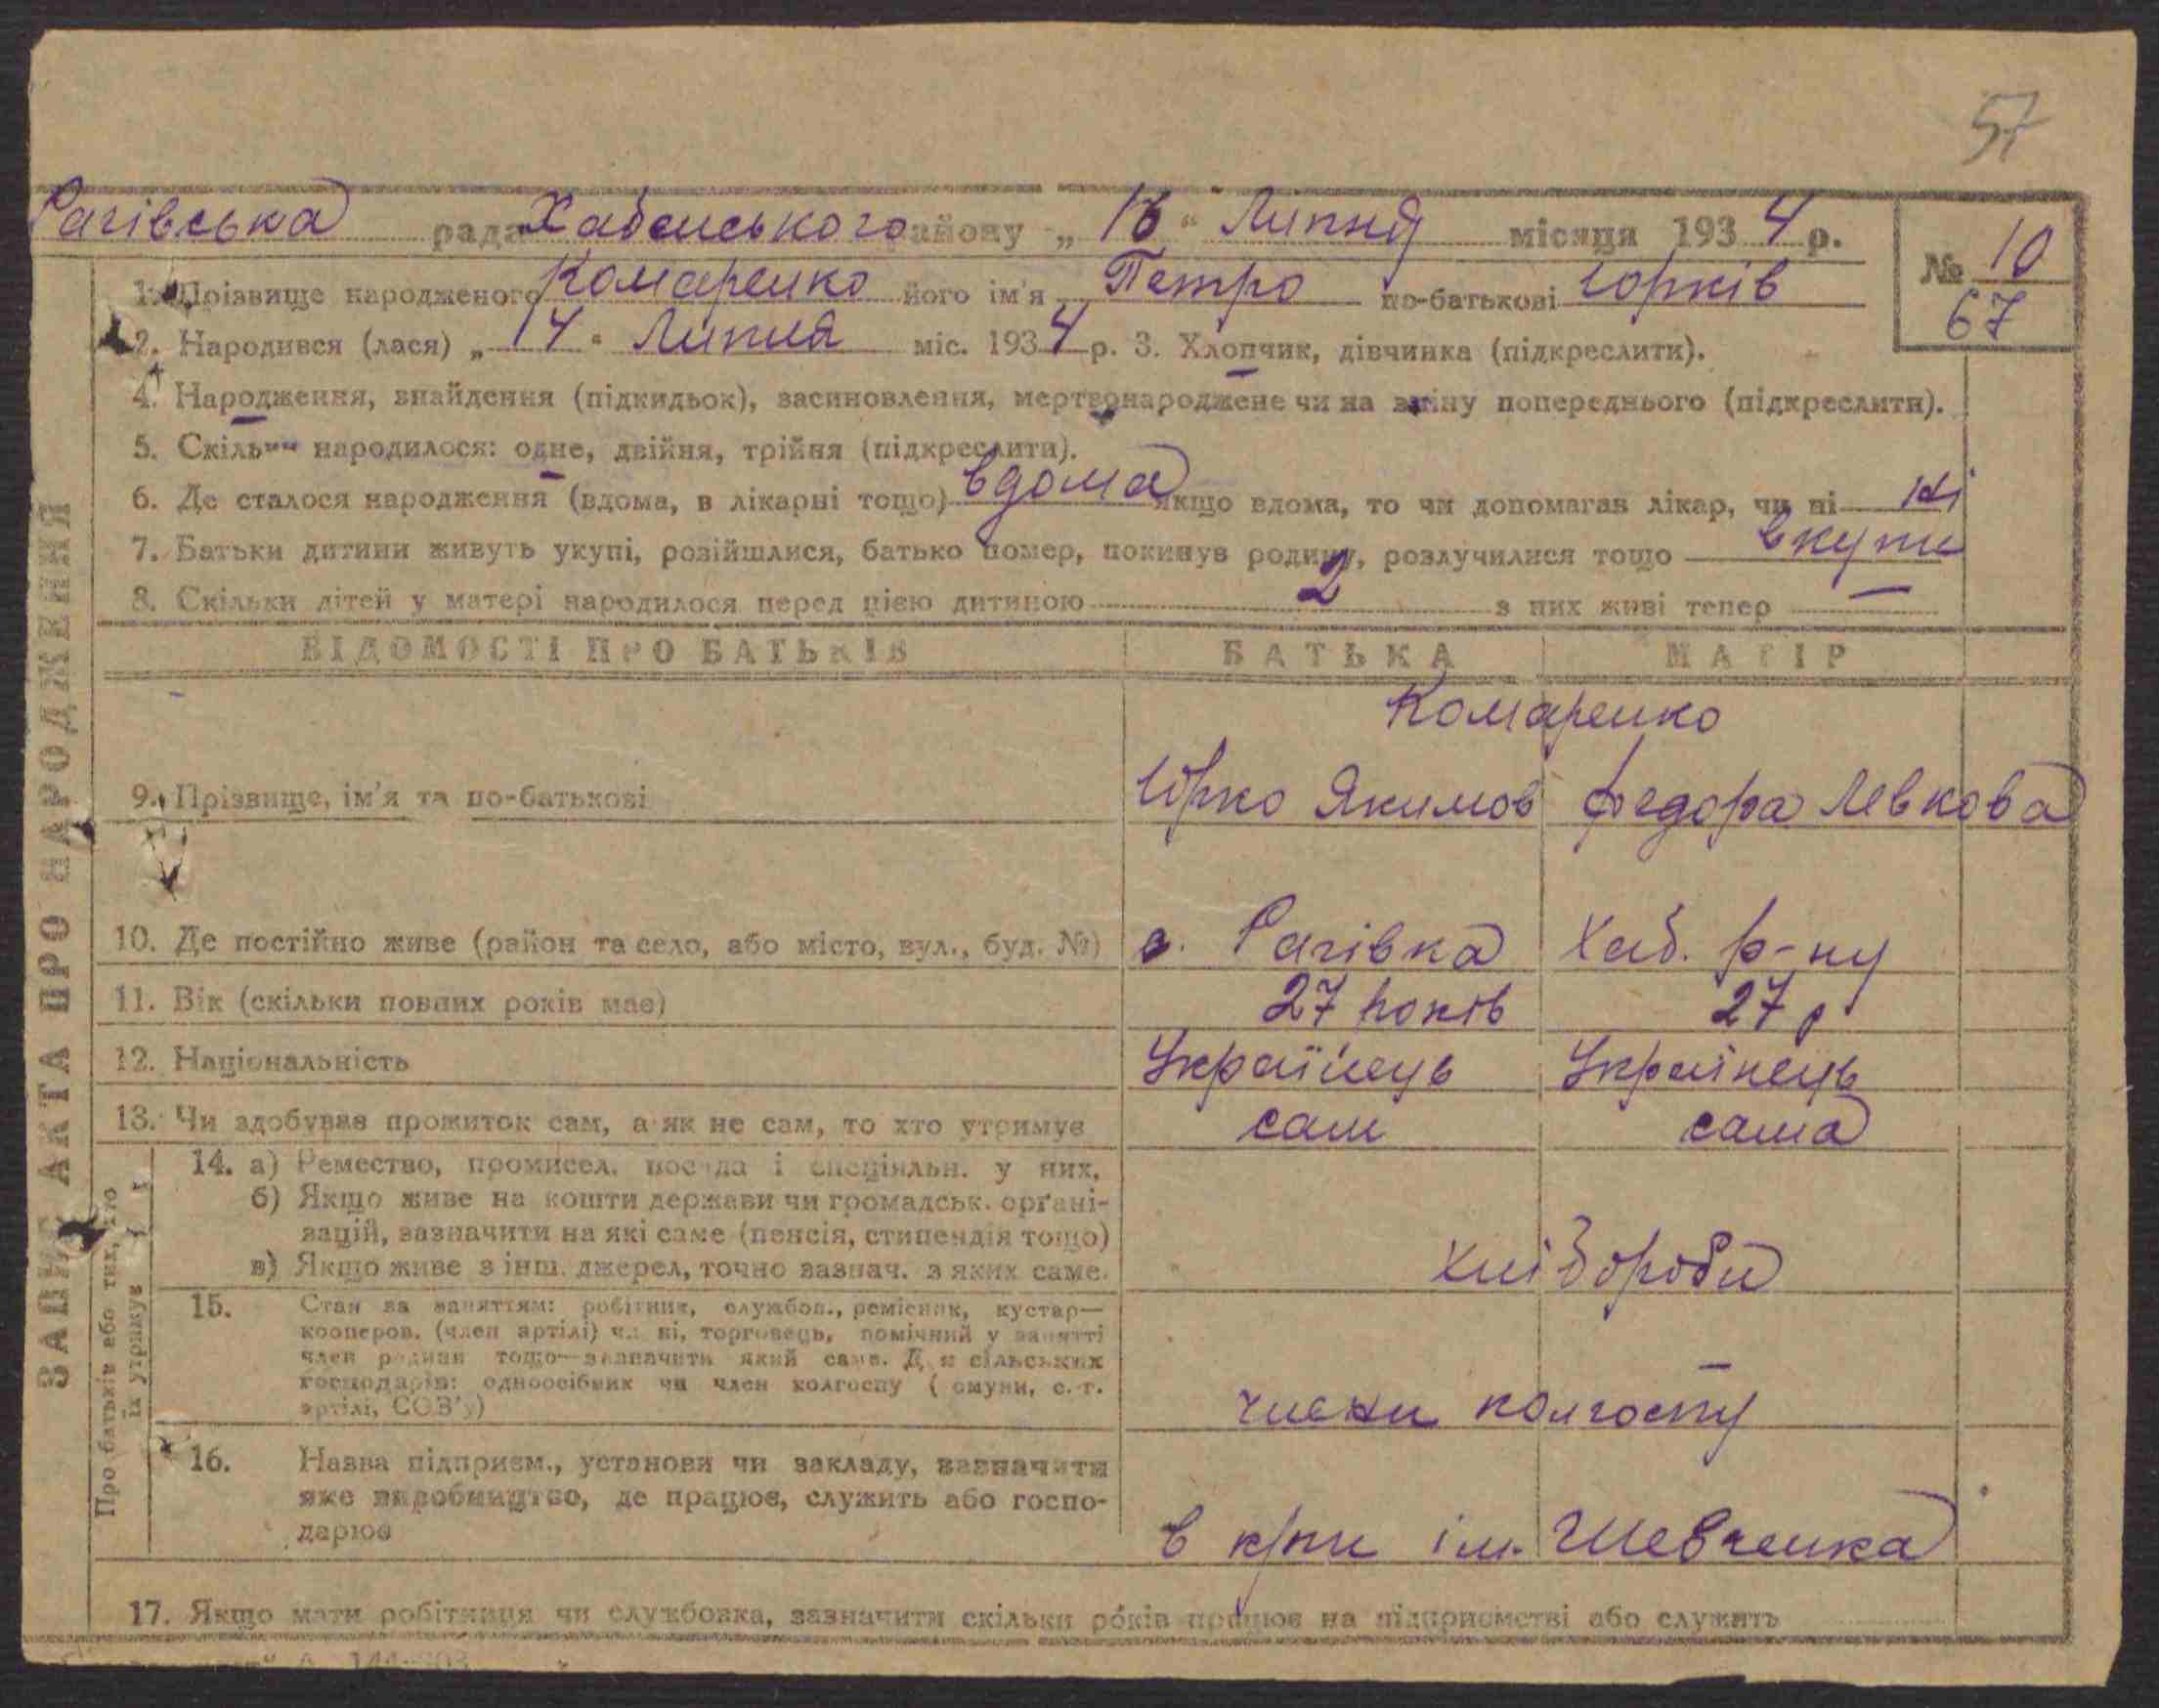 57
Рагівська рада Хабенського району „ 16 “ Липня місяця 1934 р.
№ 10
67
1. Прізвище народженого Комаренко його ім'я Петро по-батькові Юрків
2. Народився (лася) „ 14 “ Липня міс. 1934 р. 3. Хлопчик, дівчинка (підкреслити).
4. Народження, знайдення (підкидьок), засиновлення, мертвонароджене чи на зміну попереднього (підкреслити).
5. Скільки народилося: одне, двійня, трійня (підкреслити).
6. Де сталося народження (вдома, в лікарні тощо) вдома якщо вдома, то чи допомагав лікар, чи ні ні
7. Батьки дитини живуть укупі, розійшлися, батько помер, покинув родину, розлучилися тощо вкупи
8. Скільки дітей у матері народилося перед цією дитиною 2 з них живі тепер —
ВІДОМОСТІ ПРО БАТЬКІВ БАТЬКА МАТІР
Комаренко
9. Прізвище, ім'я та по-батькові Юрко Якимов Федора Левкова
10. Де постійно живе (район та село, або місто, вул., буд. №) с. Рагівка Хаб. р-ну
11. Вік (скільки повних років має) 27 років 27 р
12. Національність Українець Українець
13. Чи здобував прожиток сам, а як не сам, то хто утримує сам сама
14. а) Ремество, промисел, посада і спеціяльн. у них,
б) Якщо живе на кошти держави чи громадськ. орґані-
зацій, зазначити на які саме (пенсія, стипендія тощо)
в) Якщо живе з інш. джерел, точно зазнач. з яких саме. хлібороби
15. Стан за заняттям: робітник, службов., ремісник, кустар—
кооперов. (член артілі) чи ні, торговець, помічний у занятті
член родини тощо—зазначити який саме. Для сільських
господарів: одноосібник чи член колгоспу (комуни, с.-г.
артілі, СОЗ'у) члени колгоспу
16. Назва підприєм., установи чи закладу, зазначити
яке виробництво, де працює, служить або госпо-
дарює в к/пи ім. Шевченка
17. Якщо мати робітниця чи службовка, зазначити скільки років працює на підприємстві або служить
ЗАПИС АКТА ПРО НАРОДЖЕННЯ
Про батьків або тих, хто
їх утримує